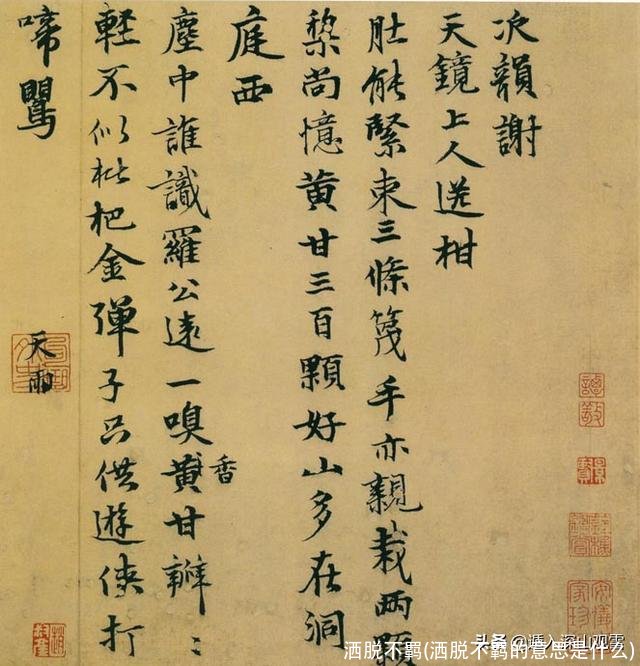 次韻謝
天鏡上人送柑
肚能緊束三條篾手亦親栽兩顆
棃尚憶黄甘三百顆好山多在洞
庭西
塵中誰識羅公遠一嗅黄甘瓣〻
香
輕不似枇杷金彈子只供遊俠打
啼鸎
天雨
头条
洒脱不羁(洒脱不羁的意思是什么)